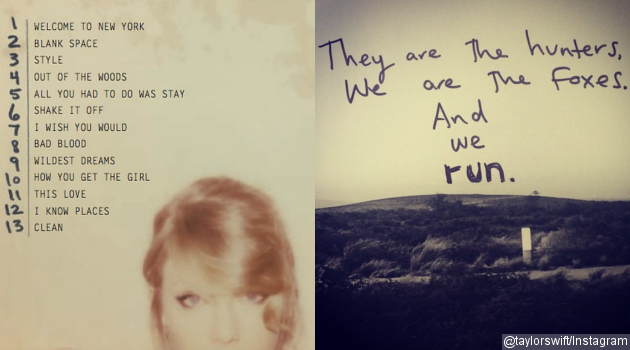 1 WELCOME TO NEW YORK
2 BLANK SPACE
3 STYLE
4 OUT OF THE WOODS
5 ALL YOU HAD TO DO WAS STAY
6 SHAKE IT OFF
7 I WISH YOU WOULD
8 BAD BLOOD
9 WILDEST DREAMS
10 HOW YOU GET THE GIRL
11 THIS LOVE
12 I KNOW PLACES
13 CLEAN
They are the hunters,
We are the foxes.
And
we
run.
@taylorswift/Instagram